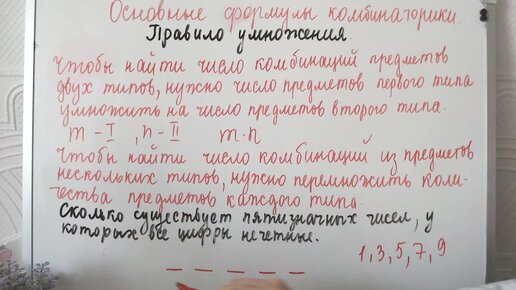 Основные формулы комбинаторики.
Правило умножения.
Чтобы найти число комбинаций предметов
двух типов, нужно число предметов первого типа
умножить на число предметов второго типа.
m – I , n – II m · n
Чтобы найти число комбинаций из предметов
нескольких типов, нужно перемножить коли-
чества предметов каждого типа.
Сколько существует пятизначных чисел, у
которых все цифры нечетные.
1, 3, 5, 7, 9